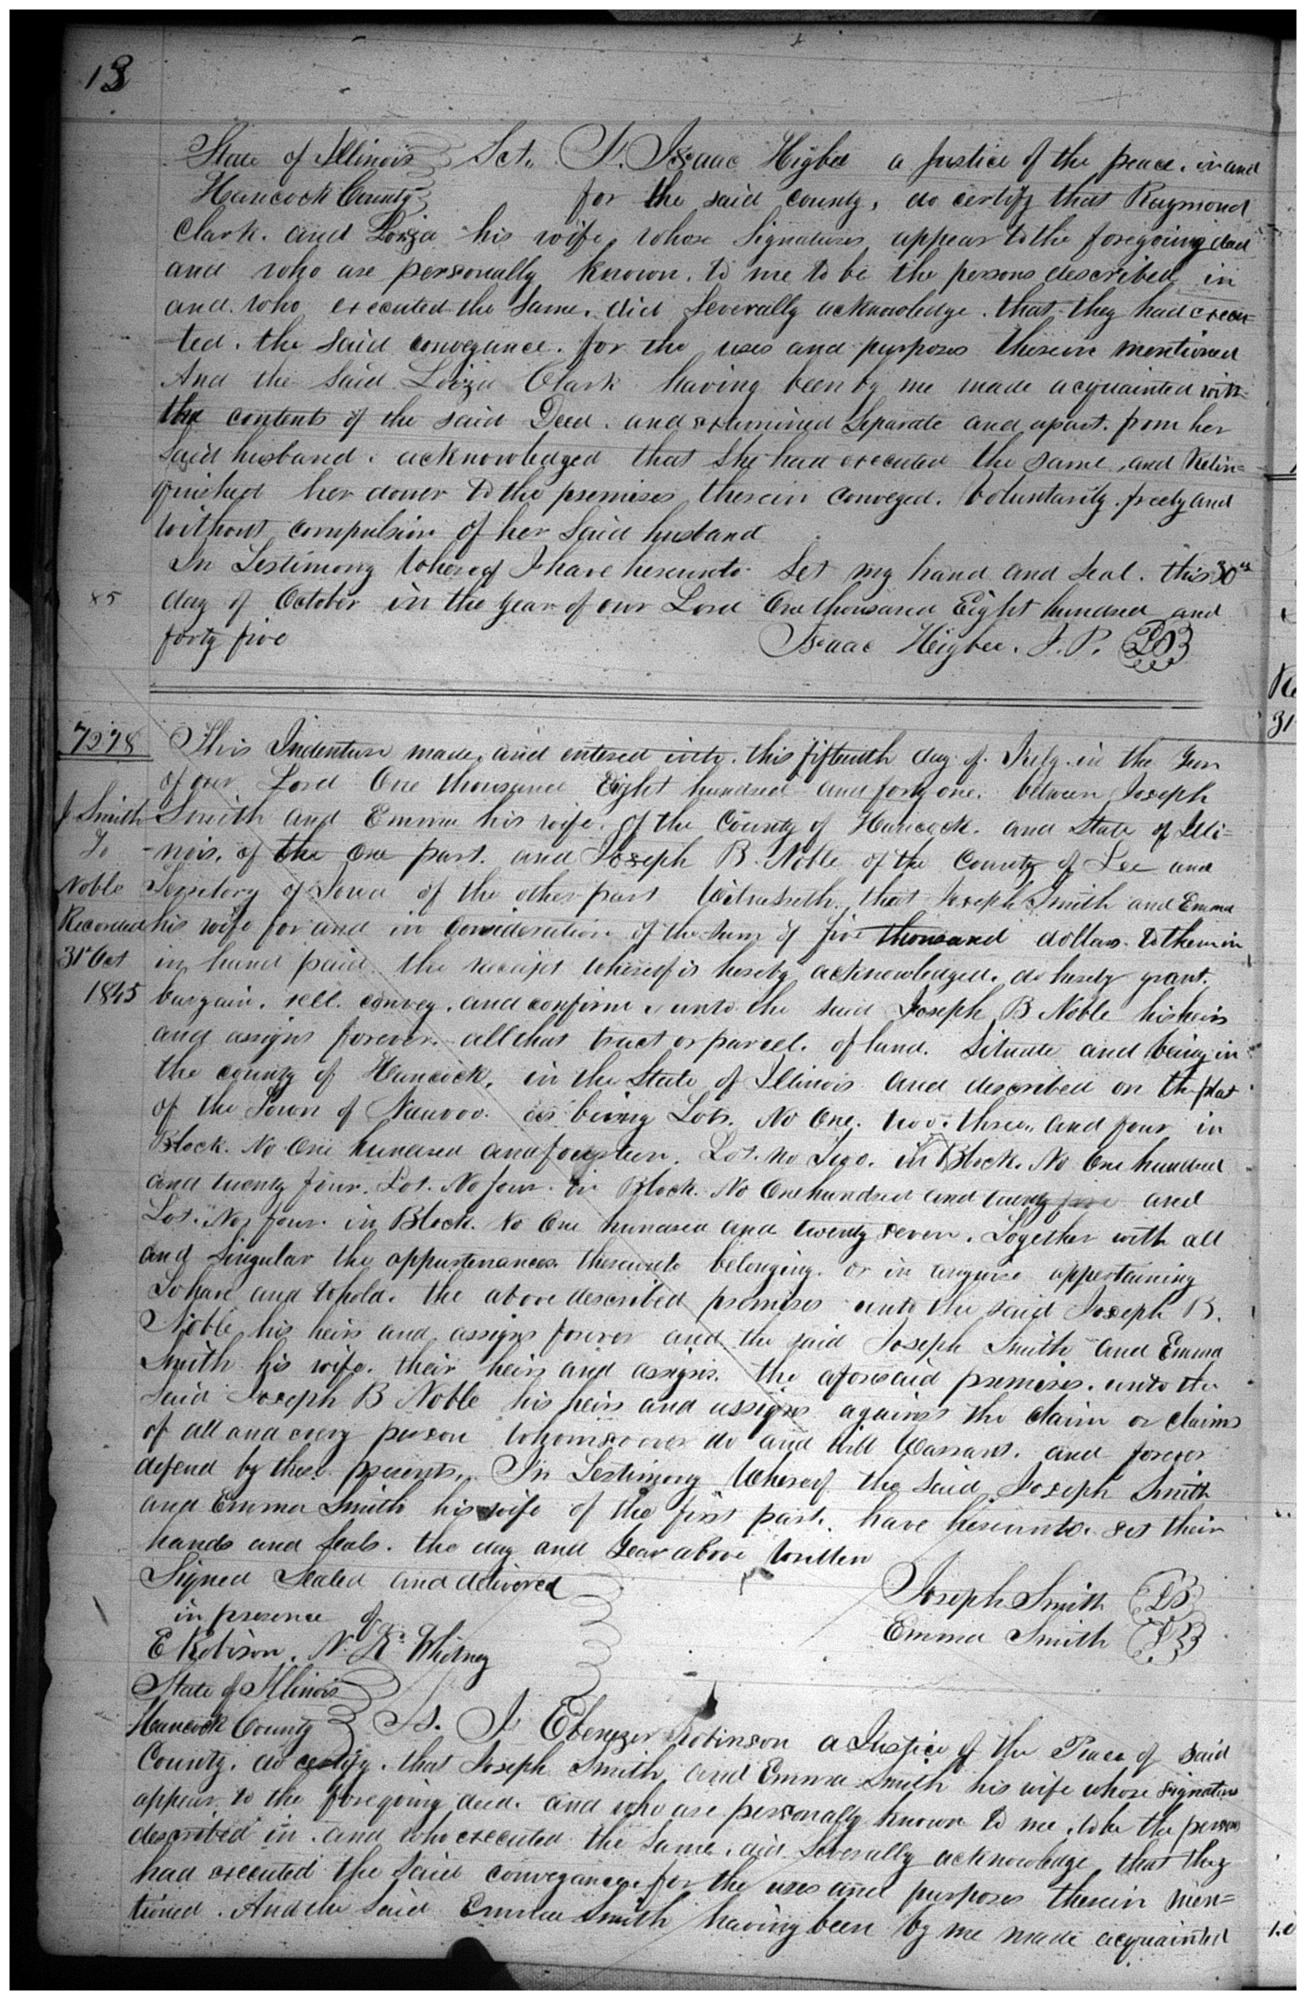 13
State of Illinois Sct. I, Isaac Higbee a Justice of the peace. in and
Hancock County for the said county, do certify that Raymond
Clark. and Loiza his wife, whose Signatures appear to the foregoing deed
and who are personally known. to me to be the persons described in
and. who executed the same. did severally acknowledge. that they had execu=
ted. the said conveyance. for the uses and purposes therein mentioned
And the said Loiza Clark having been by me made acquainted with
the contents of the said Deed. and examined Separate and apart. from her
said husband. acknowledged that she had executed the same, and Relin=
quished her dower to the premises therein conveyed. Voluntarily. freely and
without compulsion of her said husband
In Testimony Whereof I have hereunto Set my hand and seal. this 30th
85
day of October in the year of our Lord One thousand Eight hundred and
forty five Isaac Higbee. J. P.
7278
This Indenture made, and entered into. this fifteenth day of July. in the Year
of our Lord One thousand Eight hundred and forty one. between Joseph
J Smith
Smith and Emma his wife. of the County of Hancock. and State of Illi=
To
nois. of the one part. and Joseph B. Noble of the County of Lee and
Noble
Territory of Iowa of the other part Witnesseth, that Joseph Smith and Emma
Recorded
his wife for and in consideration of the sum of five thousand dollars. to them in
31st Oct
in hand paid the receipt whereof is hereby acknowledged. do hereby grant.
1845
bargain. sell. convey. and confirm. unto the said Joseph B Noble his heirs
and assigns forever. all that tract or parcel. of land. Situate and being in
the county of Hancock, in the State of Illinois and described on the plat
of the Town of Nauvoo. as being Lots. No One. two. three. and four in
Block. No One hundred and fourteen. Lot. No Two. in Block. No One hundred
and twenty four. Lot. No four. in Block. No One hundred and twenty five and
Lot. No, four. in Block. No One hundred and twenty seven. Together with all
and singular the appurtenances thereunto belonging. or in anywise appertaining
To have and to hold. the above described premises unto the said Joseph B.
Noble, his heirs and assigns forever and the said Joseph Smith and Emma
Smith his wife. their heirs and assigns. the aforesaid premises. unto the
said Joseph B Noble his heirs and assigns against the claim or claims
of all and every person whomsoever do and will Warrant. and forever
defend by these presents. In Testimony Whereof the said Joseph Smith
and Emma Smith his wife of the first part. have hereunto set their
hands and seals. the day and year above written
Signed Sealed and delivered
Joseph Smith
in presence of
Emma Smith
E Robison. N. K. Whitney
State of Illinois
Hancock County Ss. I, Ebenezer Robinson a Justice of the Peace of said
County. do certify. that Joseph Smith and Emma Smith his wife whose signatures
appear to the foregoing deed. and who are personally known to me, to be the persons
described in. and who executed the same. did severally acknowledge that they
had executed the said conveyance, for the uses and purposes therein men=
tioned. And the said Emma Smith having been by me made acquainted